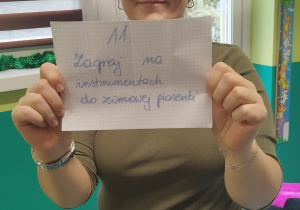 11.
Zagraj na
instrumentach
do zimowej piosenki